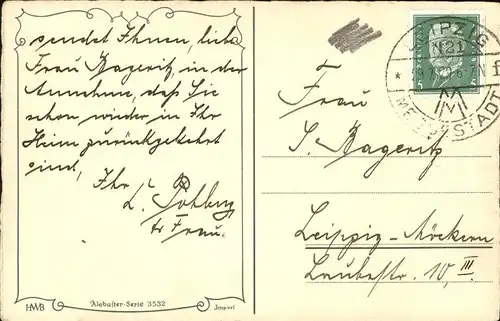 sendet Ihnen, liebe
Frau Kageritz, in der
Annahme, daß Sie
schon wieder in Ihr
Heim zurückgekehrt
sind,
Ihr
L.
& Frau.
HWB
Alabaster-Serie 3532
Import
LEIPZIG
N21
MESSESTADT
Frau
S. Kageritz
Leipzig-Möckern
Laubestr. 10, III.